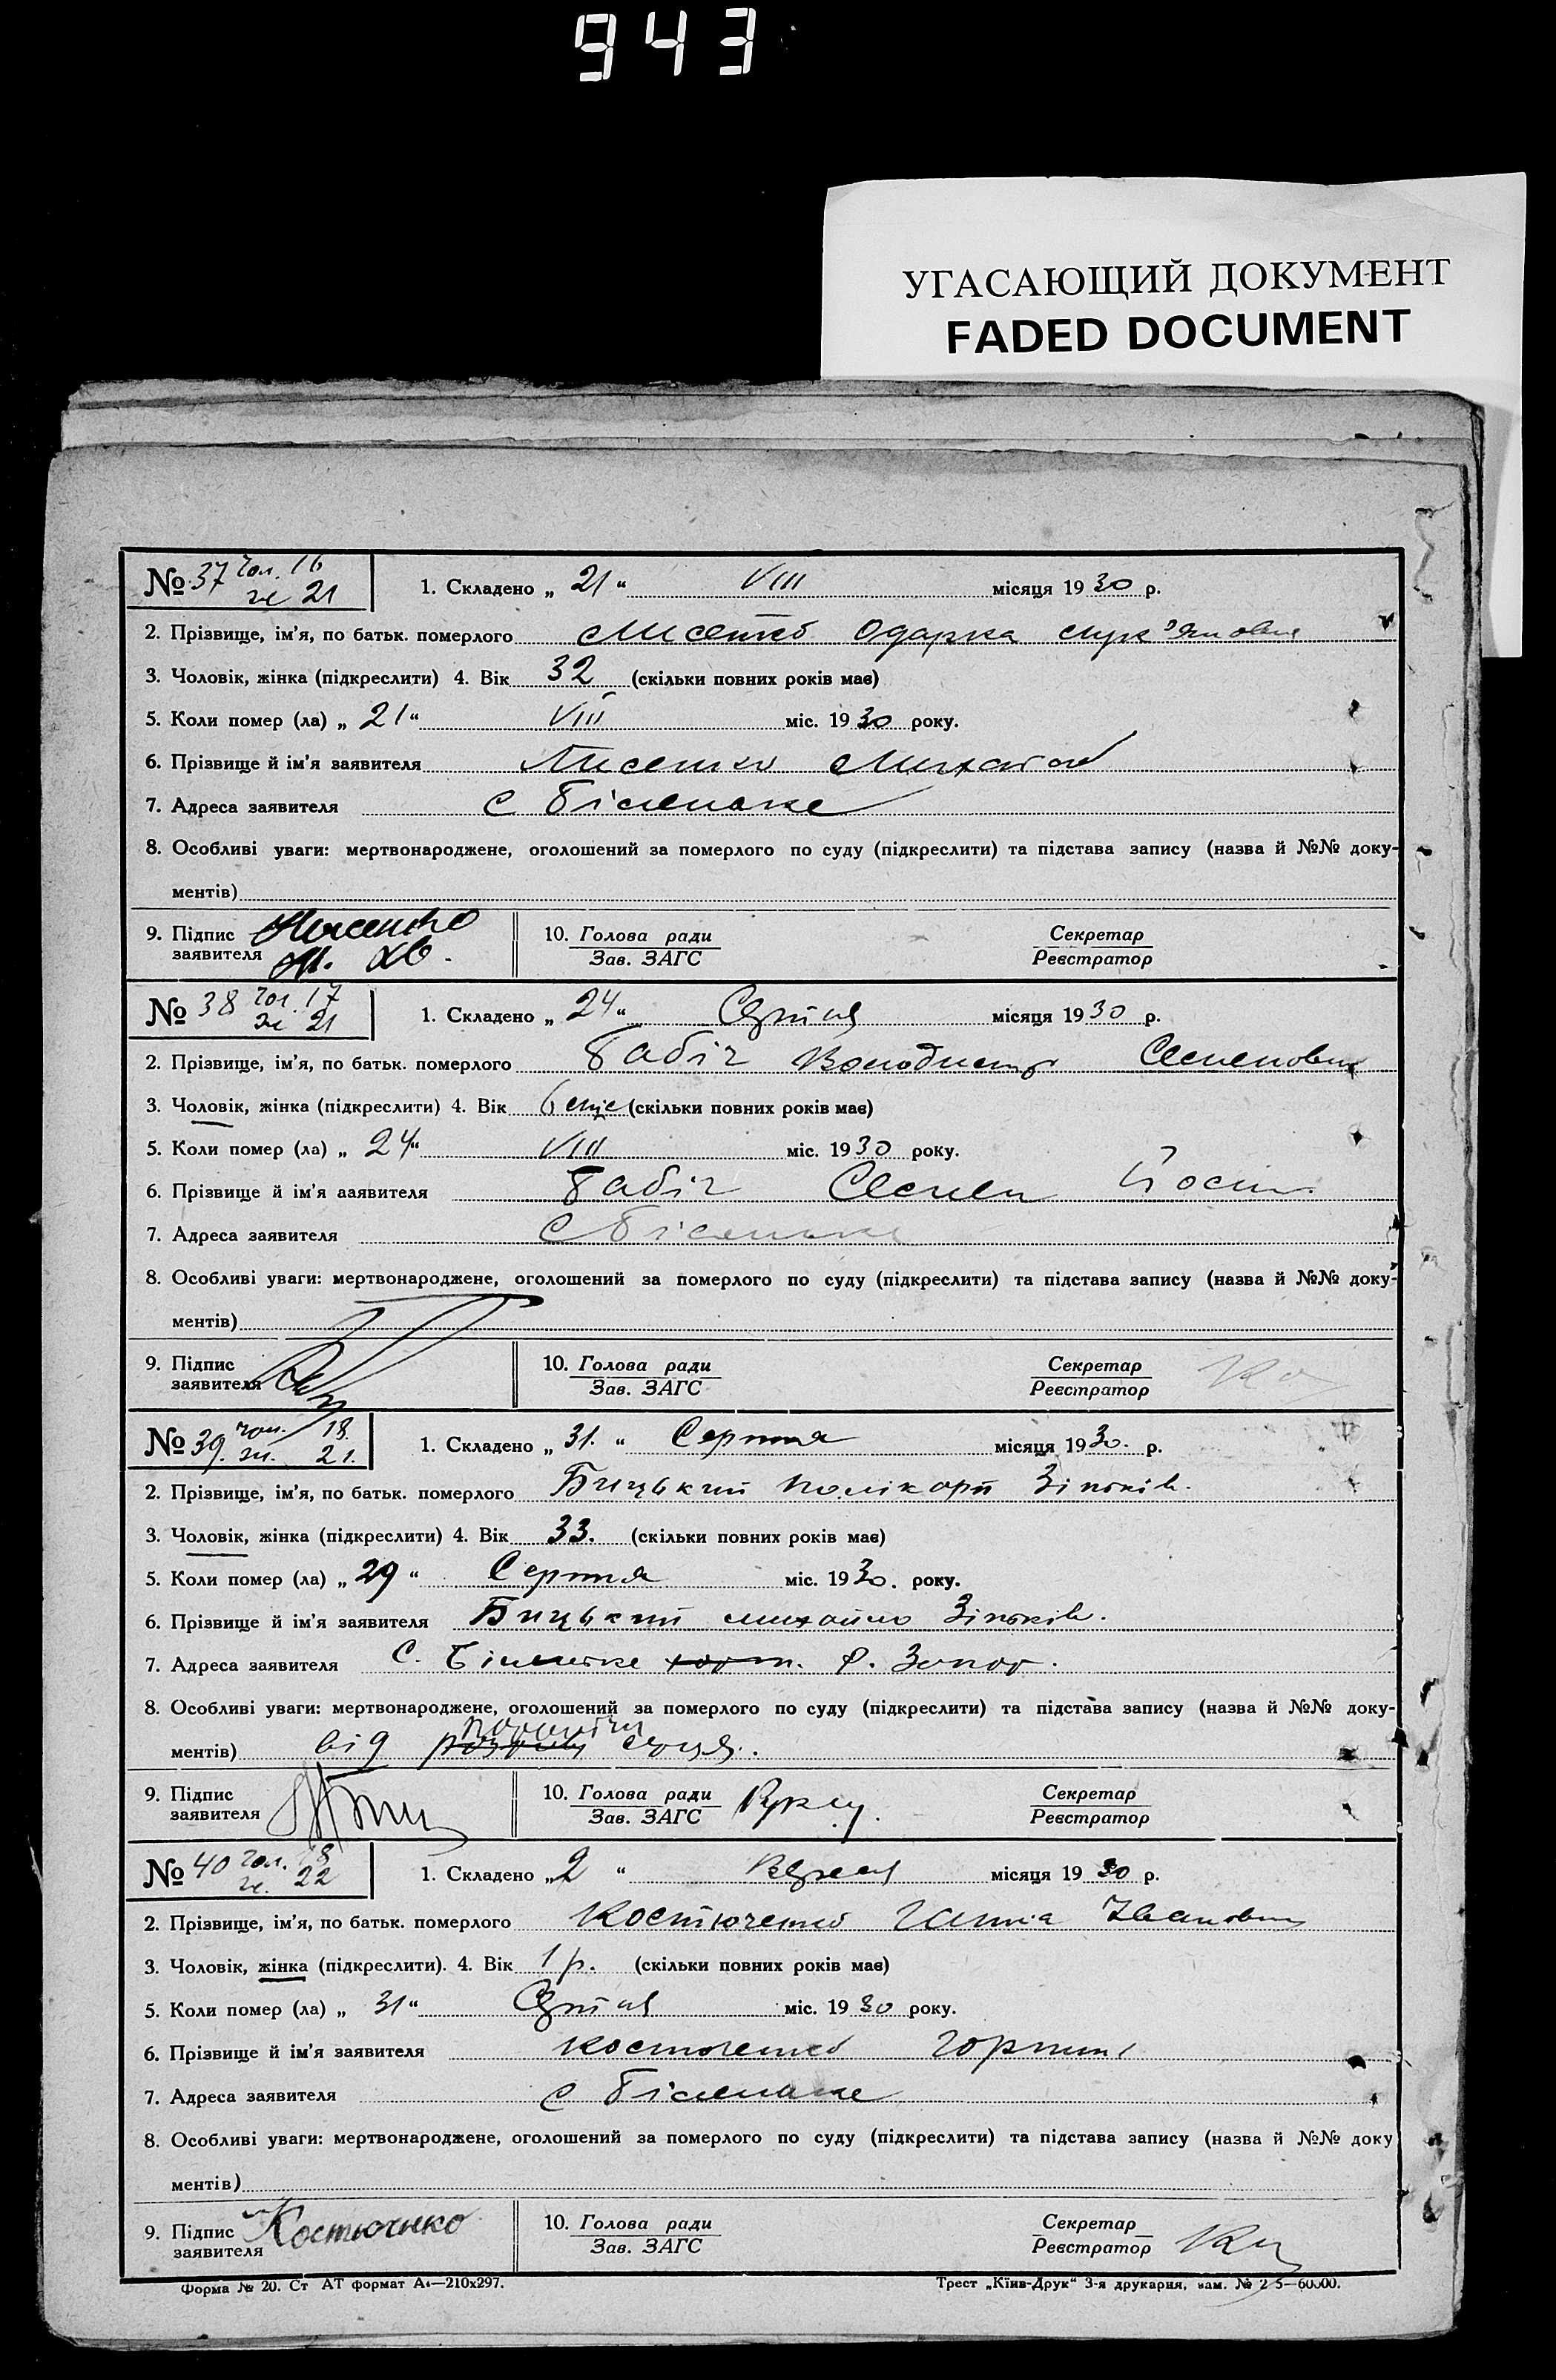 943
УГАСАЮЩИЙ ДОКУМЕНТ
FADED DOCUMENT
№ 37 чол. 16
ж 21
1. Складено „ 21 “ VIII місяця 1930 р.
2. Прізвище, ім’я, по батьк. померлого Лисенко Одарка Лук’яновна
3. Чоловік, жінка (підкреслити) 4. Вік 32 (скільки повних років має)
5. Коли помер (ла) „ 21 “ VIII міс. 1930 року.
6. Прізвище й ім’я заявителя Лисенко
7. Адреса заявителя с Біленьке
8. Особливі уваги: мертвонароджене, оголошений за померлого по суду (підкреслити) та підстава запису (назва й №№ доку-
ментів)
9. Підпис заявителя Лисенко
М. Хв.
10. Голова ради
Зав. ЗАГС
Секретар
Реєстратор
№ 38 чол. 17
ж 21
1. Складено „ 24 “ Серпня місяця 1930 р.
2. Прізвище, ім’я, по батьк. померлого Бабіч Володимир Семенович
3. Чоловік, жінка (підкреслити) 4. Вік 6 міс (скільки повних років має)
5. Коли помер (ла) „ 24 “ VIII міс. 1930 року.
6. Прізвище й ім’я заявителя Бабіч Семен Йосип.
7. Адреса заявителя с Біленьке
8. Особливі уваги: мертвонароджене, оголошений за померлого по суду (підкреслити) та підстава запису (назва й №№ доку-
ментів)
9. Підпис
заявителя
10. Голова ради
Зав. ЗАГС
Секретар
Реєстратор
№ 39. чол. 18.
жн. 21.
1. Складено „ 31. “ Серпня місяця 1930. р.
2. Прізвище, ім’я, по батьк. померлого Бицький Полікарп Зіньків.
3. Чоловік, жінка (підкреслити) 4. Вік 33. (скільки повних років має)
5. Коли помер (ла) „ 29 “ Серпня міс. 1930. року.
6. Прізвище й ім’я заявителя Бицький Михайло Зіньків.
7. Адреса заявителя С. Біленьке р. Запор.
8. Особливі уваги: мертвонароджене, оголошений за померлого по суду (підкреслити) та підстава запису (назва й №№ доку-
ментів) від серця.
9. Підпис
заявителя
10. Голова ради
Зав. ЗАГС
Секретар
Реєстратор
№ 40 чол. 18
ж. 22
1. Складено „ 2 “ Вересня місяця 1930 р.
2. Прізвище, ім’я, по батьк. померлого Костюченко Ганна Івановна
3. Чоловік, жінка (підкреслити). 4. Вік 1 р. (скільки повних років має)
5. Коли помер (ла) „ 31 “ Серпня міс. 1930 року.
6. Прізвище й ім’я заявителя Костюченко Горпина
7. Адреса заявителя с Біленьке
8. Особливі уваги: мертвонароджене, оголошений за померлого по суду (підкреслити) та підстава запису (назва й №№ доку
ментів)
9. Підпис Костючнко
заявителя
10. Голова ради
Зав. ЗАГС
Секретар
Реєстратор
Форма № 20. Ст АТ формат А4—210х297.
Трест „Київ-Друк“ 3-я друкарня,